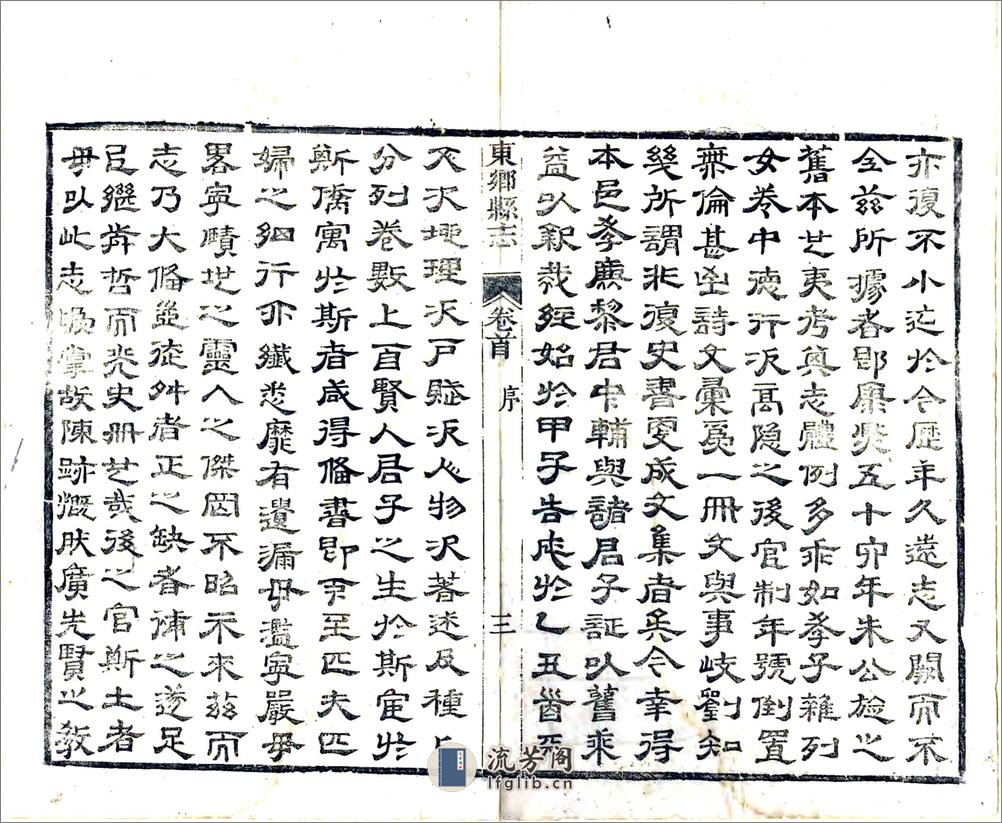 亦復不小迄於今歷年久遠志又闕而不
全茲所據者即康熙五十六年朱公檢之
舊本其夷考其志體例多乖如孝子雜列
女卷中德行次高隱之後官制年號倒置
無倫甚至詩文彙為一冊文與事歧劉知
幾所謂非復史書更成文集者矣今幸得
本邑孝廉黎君中輔與諸君子証以舊乘
益以新裁經始於甲子告成於乙丑首天
東鄉縣志 卷首 序 三
文次地理次戶賦次人物次著述及種
分列卷數上自賢人君子之生於斯宦於
斯僑寓於斯者咸得備書即至匹夫匹
婦之細行亦纖悉靡有遺漏毋濫寧嚴毋
畧寧賾世之靈人之傑罔不昭示來茲而
志乃大備並從舛者正之缺者補之遂足
邑繼前哲而光史冊其哉後之官斯土者
毋以此志為掌故陳跡慨然廣先賢之教
流芳阁
lfglib.cn